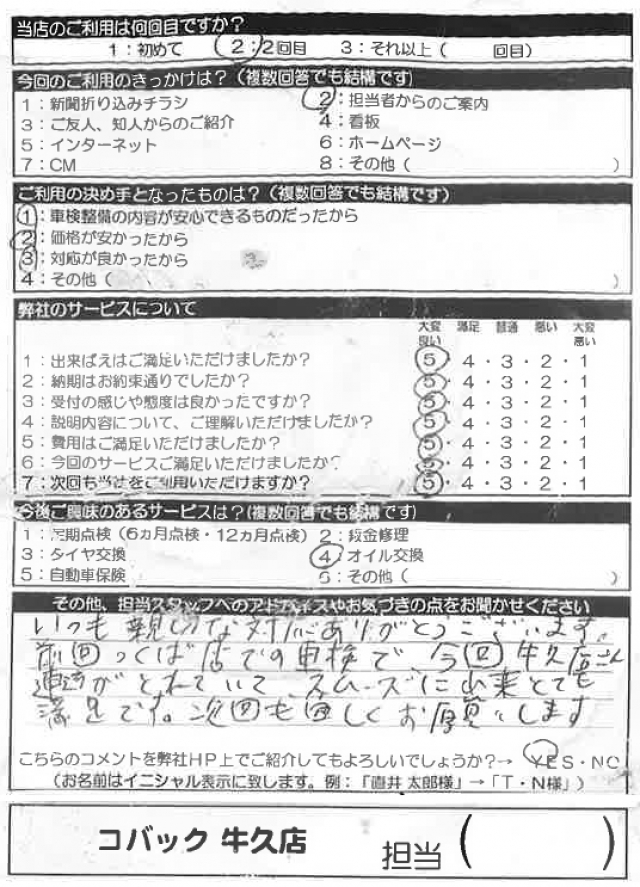 当店のご利用は何回目ですか?
1:初めて 2:2回目 3:それ以上( 回目)
今回のご利用のきっかけは?(複数回答でも結構です)
1:新聞折り込みチラシ 2:担当者からのご案内
3:ご友人、知人からのご紹介 4:看板
5:インターネット 6:ホームページ
7:CM 8:その他( )
ご利用の決め手となったものは?(複数回答でも結構です)
1:車検整備の内容が安心できるものだったから
2:価格が安かったから
3:対応が良かったから
4:その他( )
弊社のサービスについて
大変良い 満足 普通 悪い 大変悪い
1:出来ばえはご満足いただけましたか? 5・4・3・2・1
2:納期はお約束通りでしたか? 5・4・3・2・1
3:受付の感じや態度は良かったですか? 5・4・3・2・1
4:説明内容について、ご理解いただけましたか? 5・4・3・2・1
5:費用はご満足いただけましたか? 5・4・3・2・1
6:今回のサービスご満足いただけましたか? 5・4・3・2・1
7:次回も当社をご利用いただけますか? 5・4・3・2・1
今後ご興味のあるサービスは?(複数回答でも結構です)
1:定期点検(6ヵ月点検・12ヵ月点検) 2:鈑金修理
3:タイヤ交換 4:オイル交換
5:自動車保険 6:その他( )
その他、担当スタッフへのアドバイスやお気づきの点をお聞かせください
いつも親切な対応ありがとうございます。
前回つくば店での車検で、今回牛久店さん
連絡がとれていて、スムーズに出来とても
満足です。次回も宜しくお願いします
こちらのコメントを弊社HP上でご紹介してもよろしいでしょうか?→ YES・NO
(お名前はイニシャル表示に致します。例:「直井 太郎様」→「T・N様」)
コバック 牛久店 担当( )